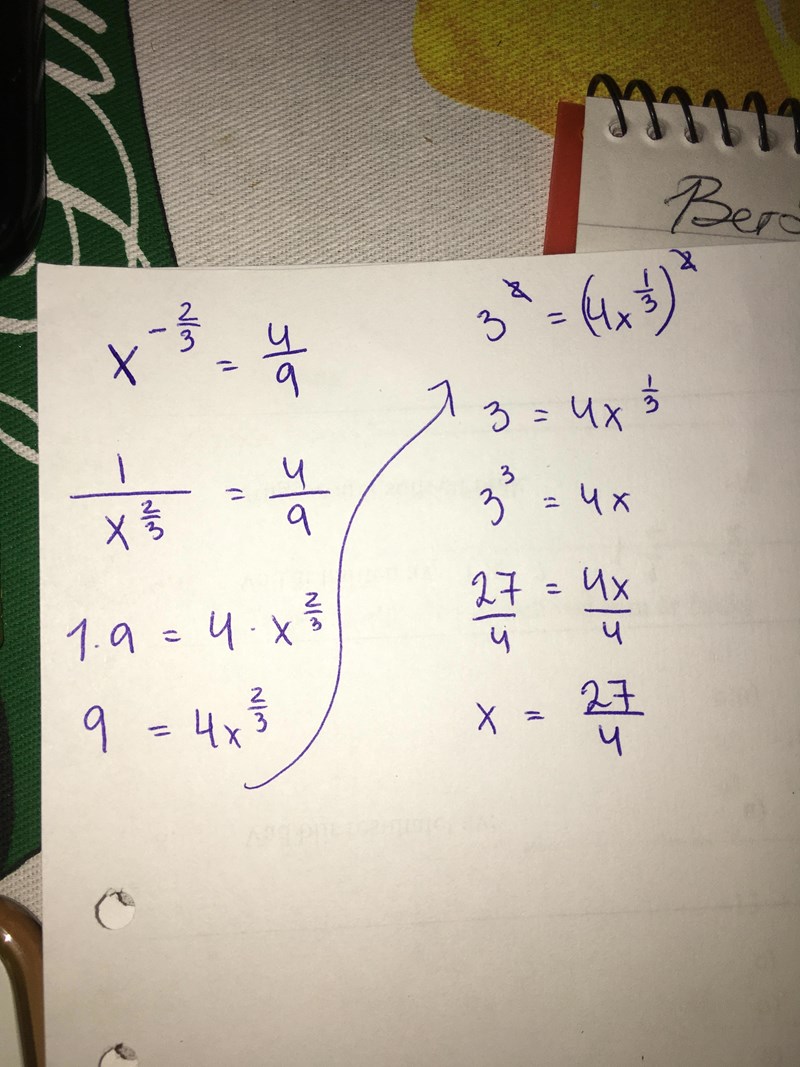 x^{-\frac{2}{3}} = \frac{4}{9}
\frac{1}{x^{\frac{2}{3}}} = \frac{4}{9}
1.9 = 4 \cdot x^{\frac{2}{3}}
9 = 4x^{\frac{2}{3}}
3^{2} = (4x^{\frac{1}{3}})^{2}
3 = 4x^{\frac{1}{3}}
3^{3} = 4x
\frac{27}{4} = \frac{4x}{4}
x = \frac{27}{4}